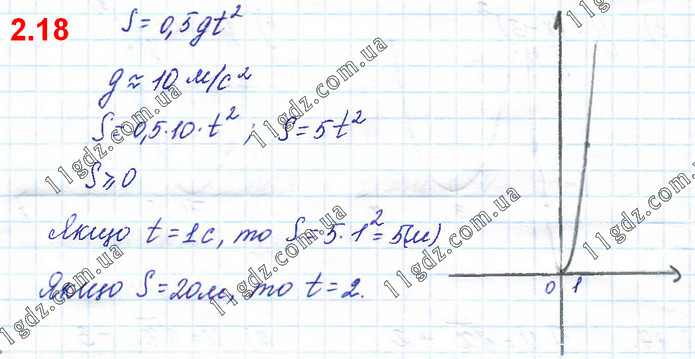 2.18
S = 0,5gt²
g ≈ 10 м/с²
S = 0,5·10·t² ; S = 5t²
S ≥ 0
Якщо t = 1с, то S = 5·1² = 5(м)
Якщо S = 20м, то t = 2.
0 1
11gdz.com.ua
11gdz.com.ua
11gdz.com.ua
11gdz.com.ua
11gdz.com.ua
11gdz.com.ua